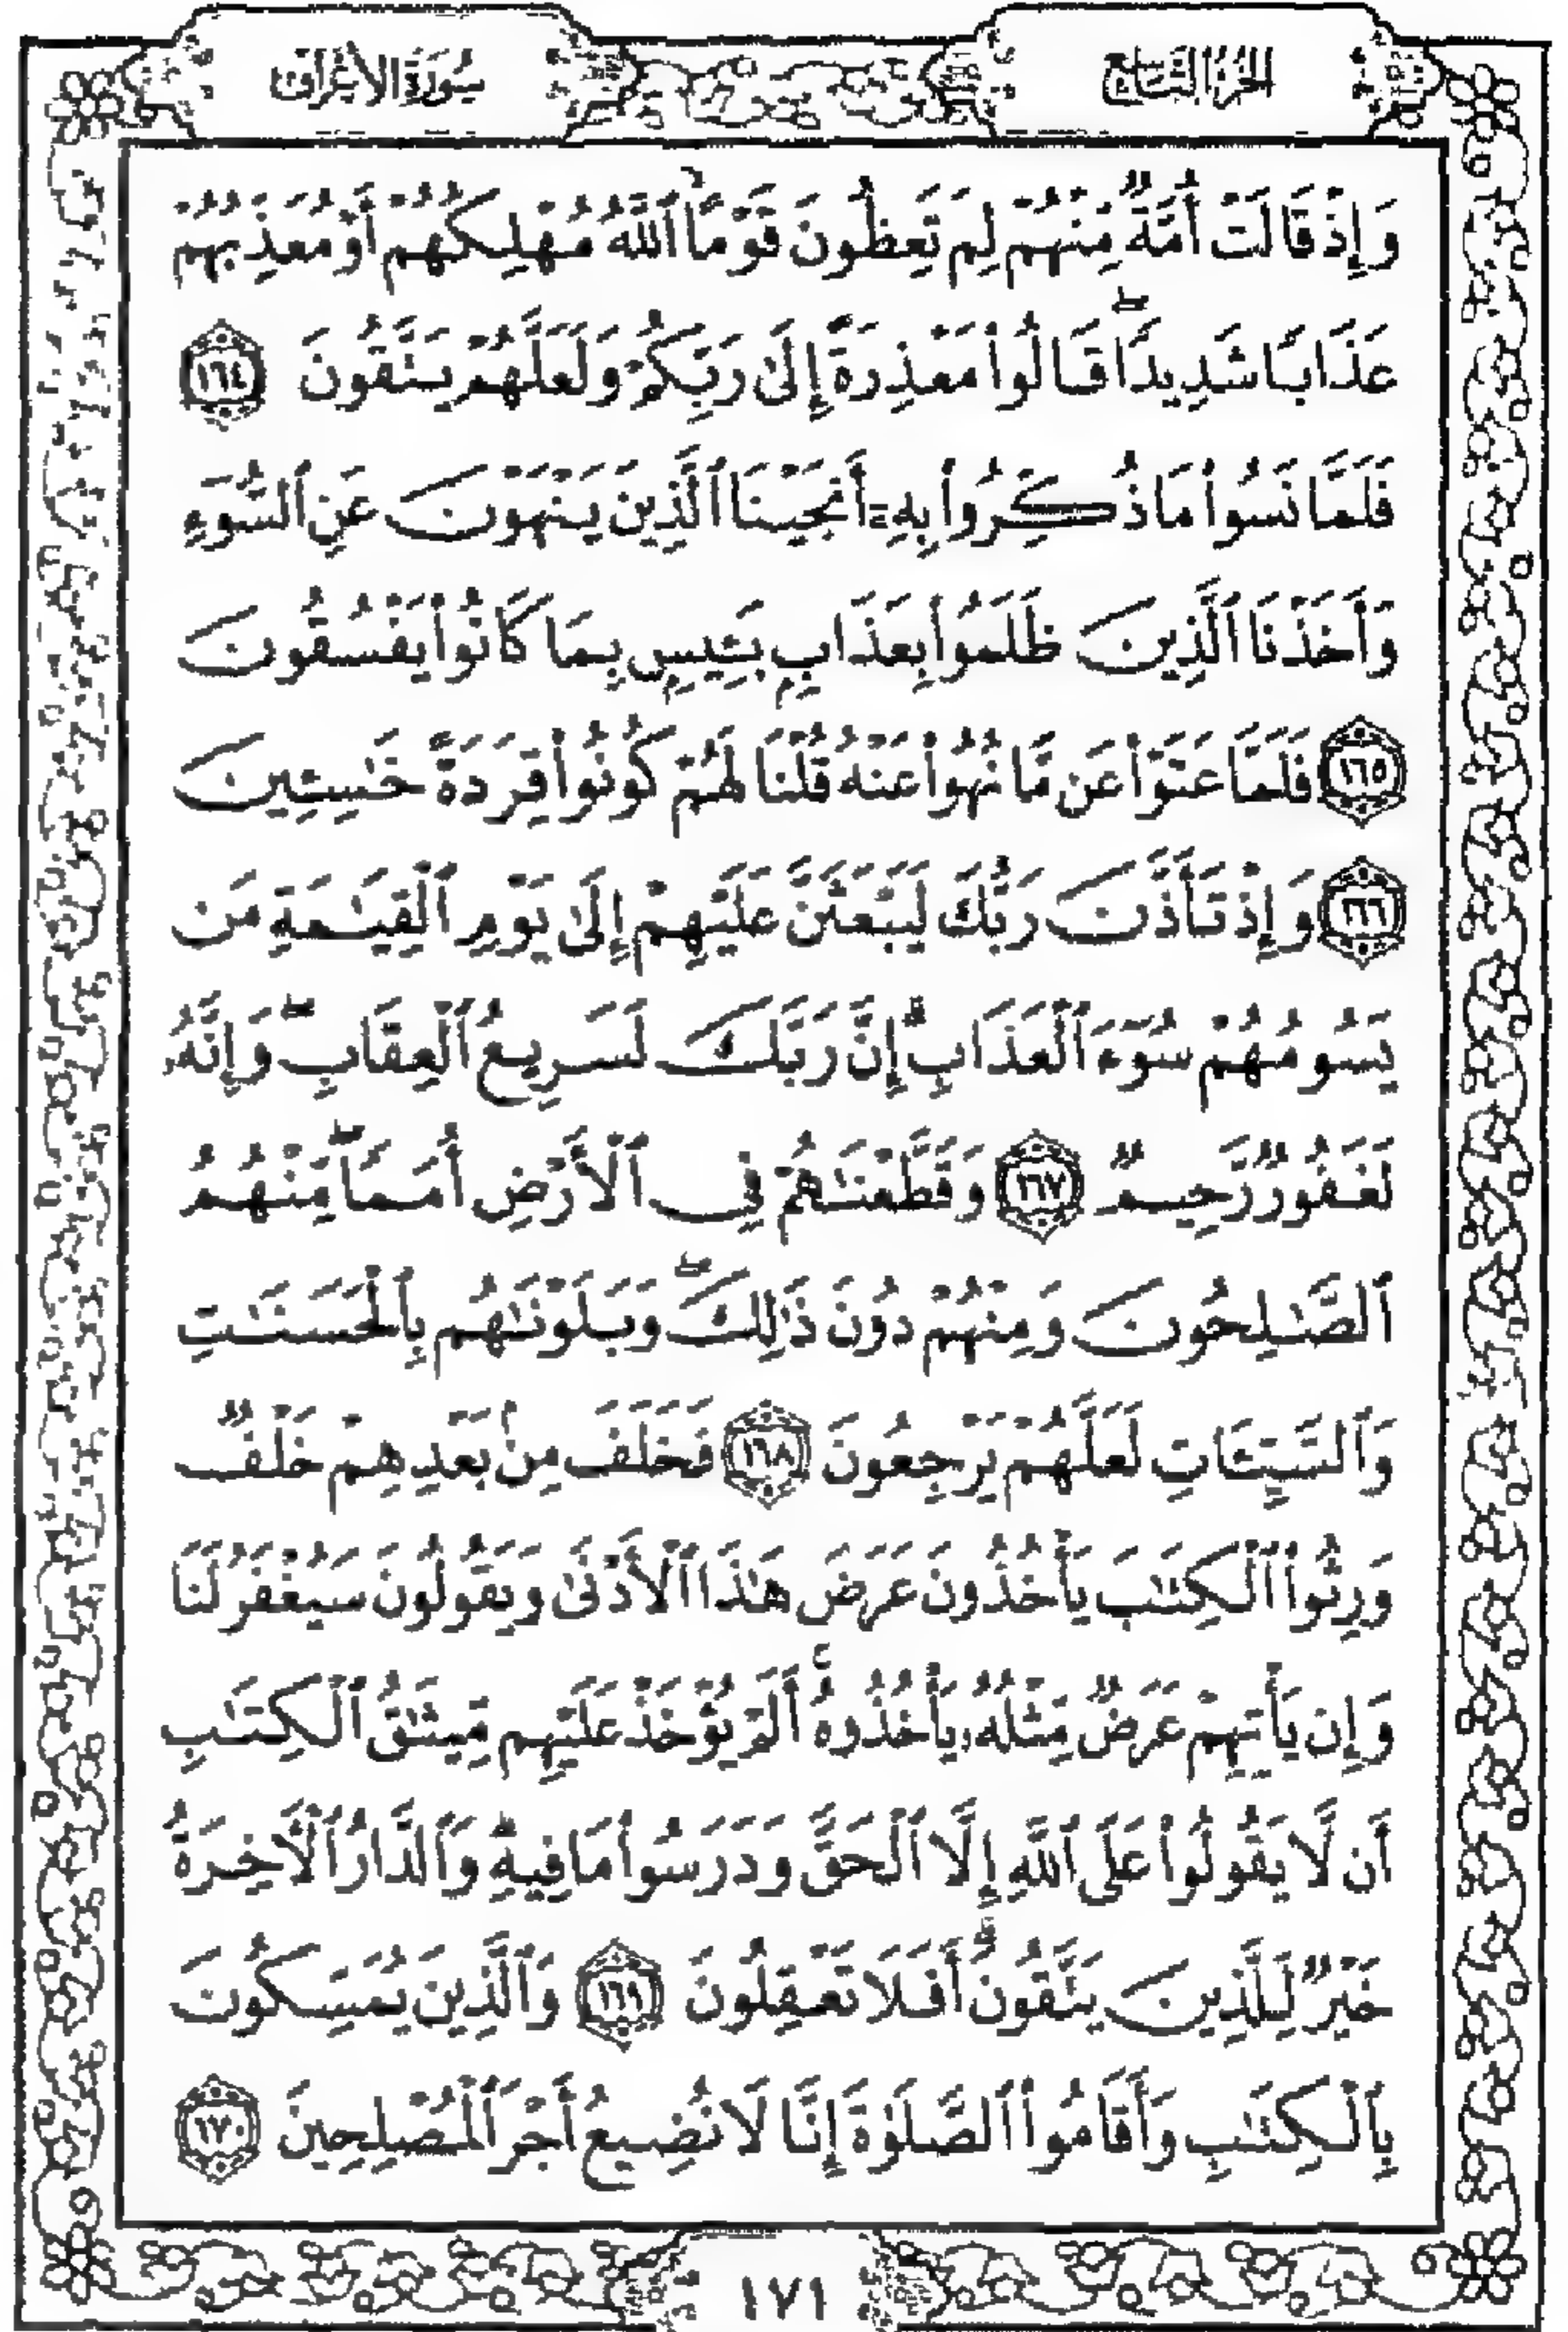 الجزء التاسع
سورة الأعراف
وَإِذْ قَالَتْ أُمَّةٌ مِّنْهُمْ لِمَ تَعِظُونَ قَوْمًا ۙ ٱللَّهُ مُهْلِكُهُمْ أَوْ مُعَذِّبُهُمْ
عَذَابًا شَدِيدًا ۖ قَالُوا۟ مَعْذِرَةً إِلَىٰ رَبِّكُمْ وَلَعَلَّهُمْ يَتَّقُونَ ١٦٤
فَلَمَّا نَسُوا۟ مَا ذُكِّرُوا۟ بِهِۦٓ أَنجَيْنَا ٱلَّذِينَ يَنْهَوْنَ عَنِ ٱلسُّوٓءِ
وَأَخَذْنَا ٱلَّذِينَ ظَلَمُوا۟ بِعَذَابٍۭ بَـِٔيسٍۭ بِمَا كَانُوا۟ يَفْسُقُونَ
١٦٥ فَلَمَّا عَتَوْا۟ عَن مَّا نُهُوا۟ عَنْهُ قُلْنَا لَهُمْ كُونُوا۟ قِرَدَةً خَـٰسِـِٔينَ
١٦٦ وَإِذْ تَأَذَّنَ رَبُّكَ لَيَبْعَثَنَّ عَلَيْهِمْ إِلَىٰ يَوْمِ ٱلْقِيَـٰمَةِ مَن
يَسُومُهُمْ سُوٓءَ ٱلْعَذَابِ ۗ إِنَّ رَبَّكَ لَسَرِيعُ ٱلْعِقَابِ ۖ وَإِنَّهُۥ
لَغَفُورٌ رَّحِيمٌ ١٦٧ وَقَطَّعْنَـٰهُمْ فِى ٱلْأَرْضِ أُمَمًا ۖ مِّنْهُمُ
ٱلصَّـٰلِحُونَ وَمِنْهُمْ دُونَ ذَٰلِكَ ۖ وَبَلَوْنَـٰهُم بِٱلْحَسَنَـٰتِ
وَٱلسَّيِّـَٔاتِ لَعَلَّهُمْ يَرْجِعُونَ ١٦٨ فَخَلَفَ مِنۢ بَعْدِهِمْ خَلْفٌ
وَرِثُوا۟ ٱلْكِتَـٰبَ يَأْخُذُونَ عَرَضَ هَـٰذَا ٱلْأَدْنَىٰ وَيَقُولُونَ سَيُغْفَرُ لَنَا
وَإِن يَأْتِهِمْ عَرَضٌ مِّثْلُهُۥ يَأْخُذُوهُ ۚ أَلَمْ يُؤْخَذْ عَلَيْهِم مِّيثَـٰقُ ٱلْكِتَـٰبِ
أَن لَّا يَقُولُوا۟ عَلَى ٱللَّهِ إِلَّا ٱلْحَقَّ وَدَرَسُوا۟ مَا فِيهِ ۗ وَٱلدَّارُ ٱلْـَٔاخِرَةُ
خَيْرٌ لِّلَّذِينَ يَتَّقُونَ ۗ أَفَلَا تَعْقِلُونَ ١٦٩ وَٱلَّذِينَ يُمَسِّكُونَ
بِٱلْكِتَـٰبِ وَأَقَامُوا۟ ٱلصَّلَوٰةَ إِنَّا لَا نُضِيعُ أَجْرَ ٱلْمُصْلِحِينَ ١٧٠
١٧١